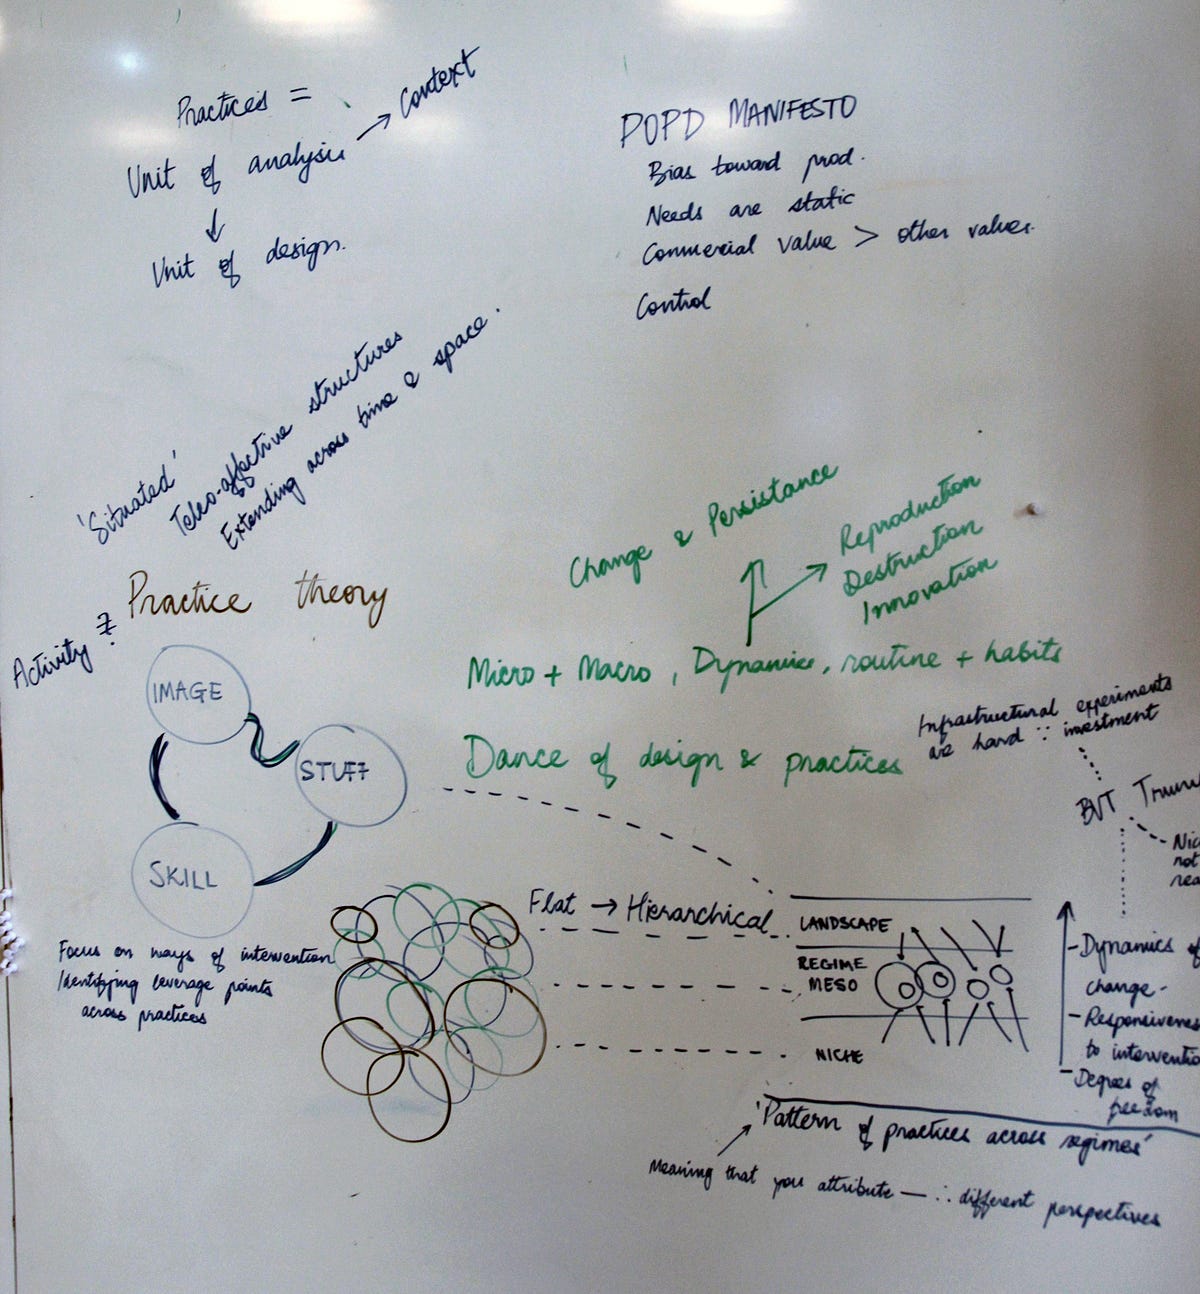 Practices =
Unit of analysis → Context
↓
Unit of design.
POPD MANIFESTO
Bias toward prod.
Needs are static
Commercial value > other values.
Control
'Situated'
Teleo-affective structures
Extending across time & space.
Practice theory
Activity ≠
IMAGE
STUFF
SKILL
Focus on ways of intervention
Identifying leverage points
across practices
Change & Persistance
Reproduction
Destruction
Innovation
Micro + Macro, Dynamics, routine + habits
Dance of design & practices
Infrastructural experiments
are hard ∵ investment
BVT
Nic
not
rea
Flat → Hierarchical
LANDSCAPE
REGIME
MESO
NICHE
- Dynamics of
change -
- Responsiveness
to interventio
- Degrees of
freedom
'Pattern of practices across regimes'
Meaning that you attribute — ∴ different perspectives